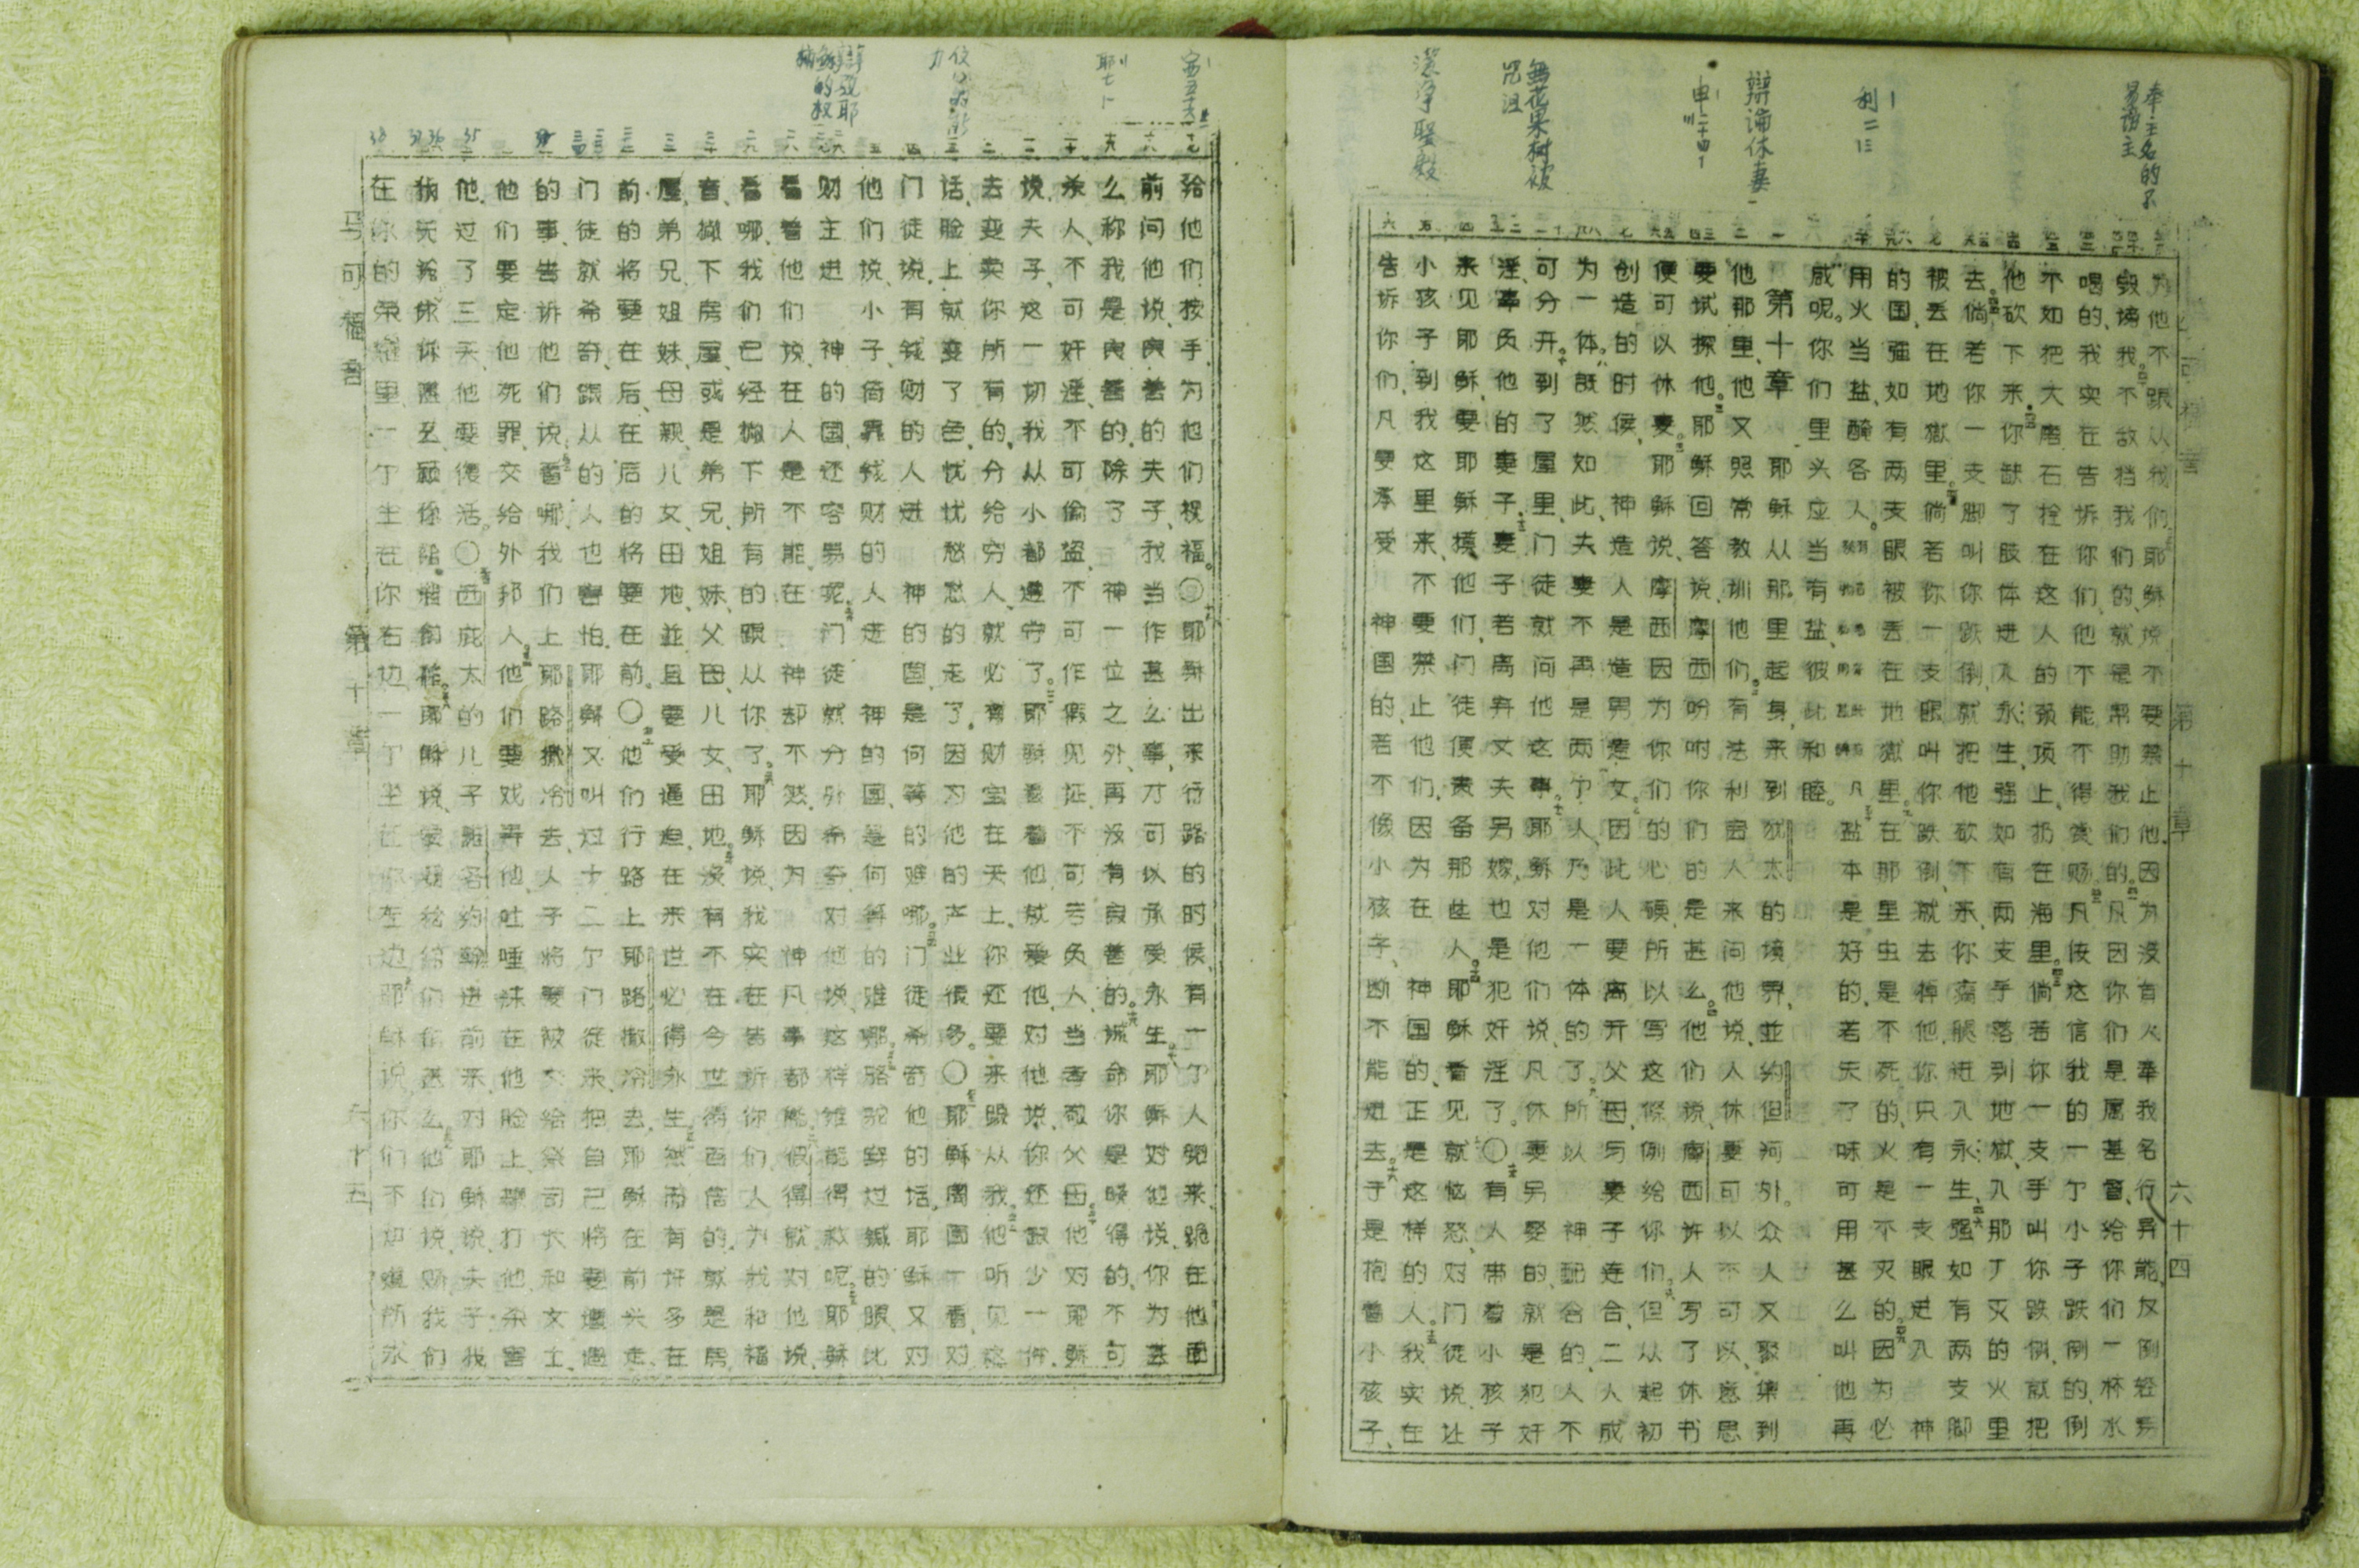 奉主名的不
马可福音 第十章 六十四
为他不跟从我们耶稣说不要禁止他。因为没有人奉我名行异能反倒轻易
毁谤我。不敌挡我们的、就是帮助我们的。凡因你们是属基督、给你们一杯水
喝的、我实在告诉你们、他不能不得赏赐。凡使这信我的一个小子跌倒的、倒
不如把大磨石拴在这人的颈项上、扔在海里。倘若你一支手叫你跌倒、就把
他砍下来。你缺了肢体进入永生、强如有两支手落到地獄、入那不灭的火里
去。倘若你一支脚叫你跌倒、就把他砍下来、你瘸腿进入永生、强如有两支脚
被丢在地獄里。倘若你一支眼叫你跌倒、就去掉他、你只有一支眼进入神
的国、强如有两支眼被丢在地獄里。在那里虫是不死的、火是不灭的。因为必
用火当盐、醃各人。 凡盐本是好的、若失了味可用甚么叫他再
咸呢。你们里头应当有盐、彼此和睦。
辩论休妻
第十章
耶稣从那里起身、来到犹太的境界、並约但河外。众人又聚集到
他那里、他又照常教训他们。有法利赛人来问他说、人休妻可以不可以、意思
要试探他。耶稣回答说、摩西吩咐你们的是甚么。他们说、摩西许人写了休书
便可以休妻。耶稣说、摩西因为你们的心硬、所以写这条例给你们。但从起初
创造的时候、神造人是造男造女。因此人要离开父母、与妻子连合、二人成
为一体。既然如此、夫妻不再是两个人、乃是一体的了。所以神配合的、人不
可分开。到了屋里、门徒就问他这事。耶稣对他们说、凡休妻另娶的、就是犯奸
淫、辜负他的妻子。妻子若离弃丈夫另嫁、也是犯奸淫了。○有人带着小孩子
無花果树被
咒诅
来见耶稣、要耶稣摸他们、门徒便责备那些人。耶稣看见就恼怒、对门徒说、让
洁净聖殿
小孩子到我这里来、不要禁止他们、因为在神国的、正是这样的人。我实在
告诉你们、凡要承受神国的、若不像小孩子、断不能进去。于是抱着小孩子、
给他们按手、为他们祝福。○耶稣出来行路的时候、有一个人跑来、跪在他面
前问他说、良善的夫子、我当作甚么事、才可以承受永生。耶稣对他说、你为甚
么称我是良善的、除了神一位之外、再没有良善的。诫命你是晓得的、不可
杀人、不可奸淫、不可偷盗、不可作假见证、不可亏负人、当孝敬父母。他对耶稣
说、夫子、这一切我从小都遵守了。耶稣看着他、就爱他、对他说、你还缺少一件、
去变卖你所有的、分给穷人、就必有财宝在天上、你还要来跟从我。他听见这
话、脸上就变了色、忧忧愁愁的走了、因为他的产业很多。○耶稣周围一看、对
门徒说、有钱财的人进神的国、是何等的难哪。门徒希奇他的话。耶稣又对
他们说、小子、倚靠钱财的人进神的国、是何等的难哪。骆驼穿过鍼的眼、比
财主进神的国、还容易呢。门徒就分外希奇、对他说、这样谁能得救呢。耶稣
看着他们说、在人是不能、在神却不然、因为神凡事都能。
看哪、我们已经撇下所有的跟从你了。耶稣说、我实在告诉你们、人为我和福
音、撇下房屋、或是弟兄、姐妹、父母、儿女、田地。没有不在今世得百倍的、就是房
屋、弟兄、姐妹、母亲、儿女、田地、並且要受逼迫、在来世必得永生。然而有许多在
前的将要在后、在后的将要在前。○他们行路上耶路撒冷去、耶稣在前头走、
门徒就希奇、跟从的人也害怕。耶稣又叫过十二个门徒来、把自己将要遭遇
的事、告诉他们说、看哪、我们上耶路撒冷去、人子将要被交给祭司长和文士、
他们要定他死罪、交给外邦人。他们要戏弄他、吐唾沫在他脸上、鞭打他、杀害
他。过了三天、他要复活。○西庇太的儿子雅各约翰进前来、对耶稣说、夫子、我
耶稣说、要我给你们作甚么。他们说、赐我们
在你的荣耀里、一个坐在你右边、一个坐在你左边。耶稣说、你们不知道所求
马可福音 第十一章 六十五